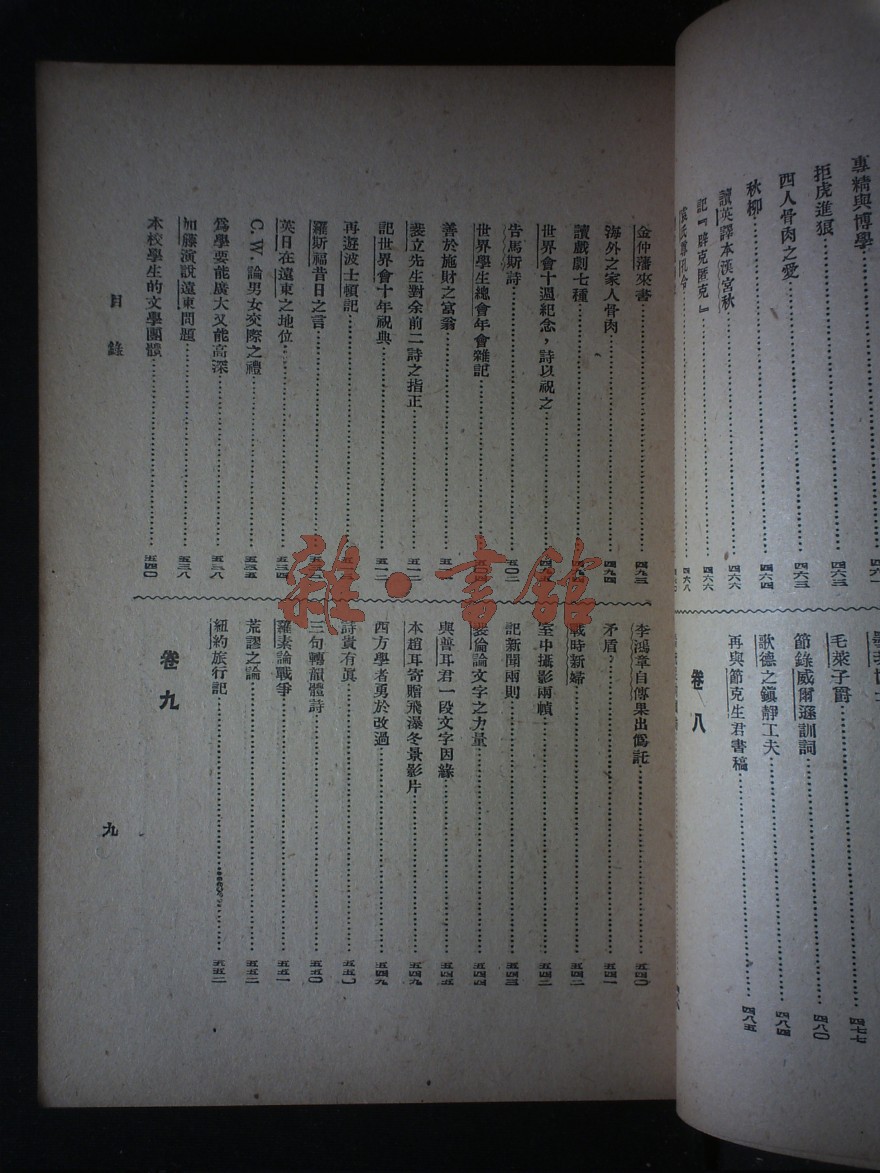 專精與博學……四六一
拒虎進狼……四六三
四人骨肉之愛……四六三
秋柳……四六四
讀英譯本漢宮秋……四六六
記『辟克匿克』……四六六
卷八
毛萊子爵……四八〇
節錄威爾遜訓詞
歌德之鎮靜工夫……四八四
再與節克生君書稿……四八五
金仲藩來書……四九三
海外之家人骨肉……四九四
讀戲劇七種
世界會十週紀念，詩以祝之
告馬斯詩……五〇二
世界學生總會年會雜記
善於施財之富翁
裴立先生對余前二詩之指正……五一二
記世界會十年祝典……五一二
再遊波士頓記
羅斯福昔日之言
英日在遠東之地位……五三四
C.W.論男女交際之禮……五三五
爲學要能廣大又能高深……五三八
加藤演說遠東問題……五三八
本校學生的文學團體……五四〇
李鴻章自傳果出僞託……五四〇
矛盾……五四一
戰時新婦……五四二
室中攝影兩幀……五四二
記新聞兩則……五四三
裴倫論文字之力量……五四四
與普耳君一段文字因緣……五四五
本趙耳寄贈飛瀑冬景影片……五四九
西方學者勇於改過……五四九
詩貴有眞……五五〇
三句轉韻體詩……五五〇
羅素論戰爭……五五一
荒謬之論……五五二
紐約旅行記……五五二
卷九
目錄
九
雜·書館